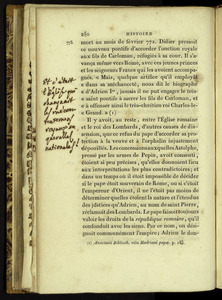 280 HISTOIRE
772 mort au mois de février 772. Didier pressait
ce nouveau pontife d'accorder l'onction royale
aux fils de Carloman, refugiés à sa cour. Il s'a-
vança même vers Rome, avec ces jeunes princes
et les seigneurs Francs qui les avaient accompa-
gnés. « Mais, quelque artifice qu'il employât
« dans sa méchanceté, nous dit le biographe
« d'Adrien Ier, jamais il ne put engager le très-
« saint pontife à sacrer les fils de Carloman, et
« à offenser ainsi le très-chrétien roi Charles-le-
« Grand. » (1)
Il y avait, au reste, entre l'Église romaine
et le roi des Lombards, d'autres causes de dis-
sension, que ce refus du pape d'accorder sa pro-
tection à la veuve et à l'orphelin injustement
dépouillés. Les communications auxquelles Astolphe,
pressé par les armes de Pepin, avait consenti,
étaient si peu précises, qu'elles donnaient lieu
aux interprétations les plus contradictoires; et
dans un temps où il était impossible de décider
si le pape était souverain de Rome, ou si c'était
l'empereur d'Orient, il ne l'était pas moins de
déterminer quelles étaient la nature et l'étendue
des justices qu'Adrien, au nom de saint Pierre,
réclamait des Lombards. Le pape faisait toujours
valoir les droits de la république romaine, qu'il
confondait avec les siens. Par ce nom, on dési-
gnait communément l'empire; Adrien le don-
(1) Anastasii Biblioth. vita Hadriani papæ, p.
Et c'était
l'Église qui